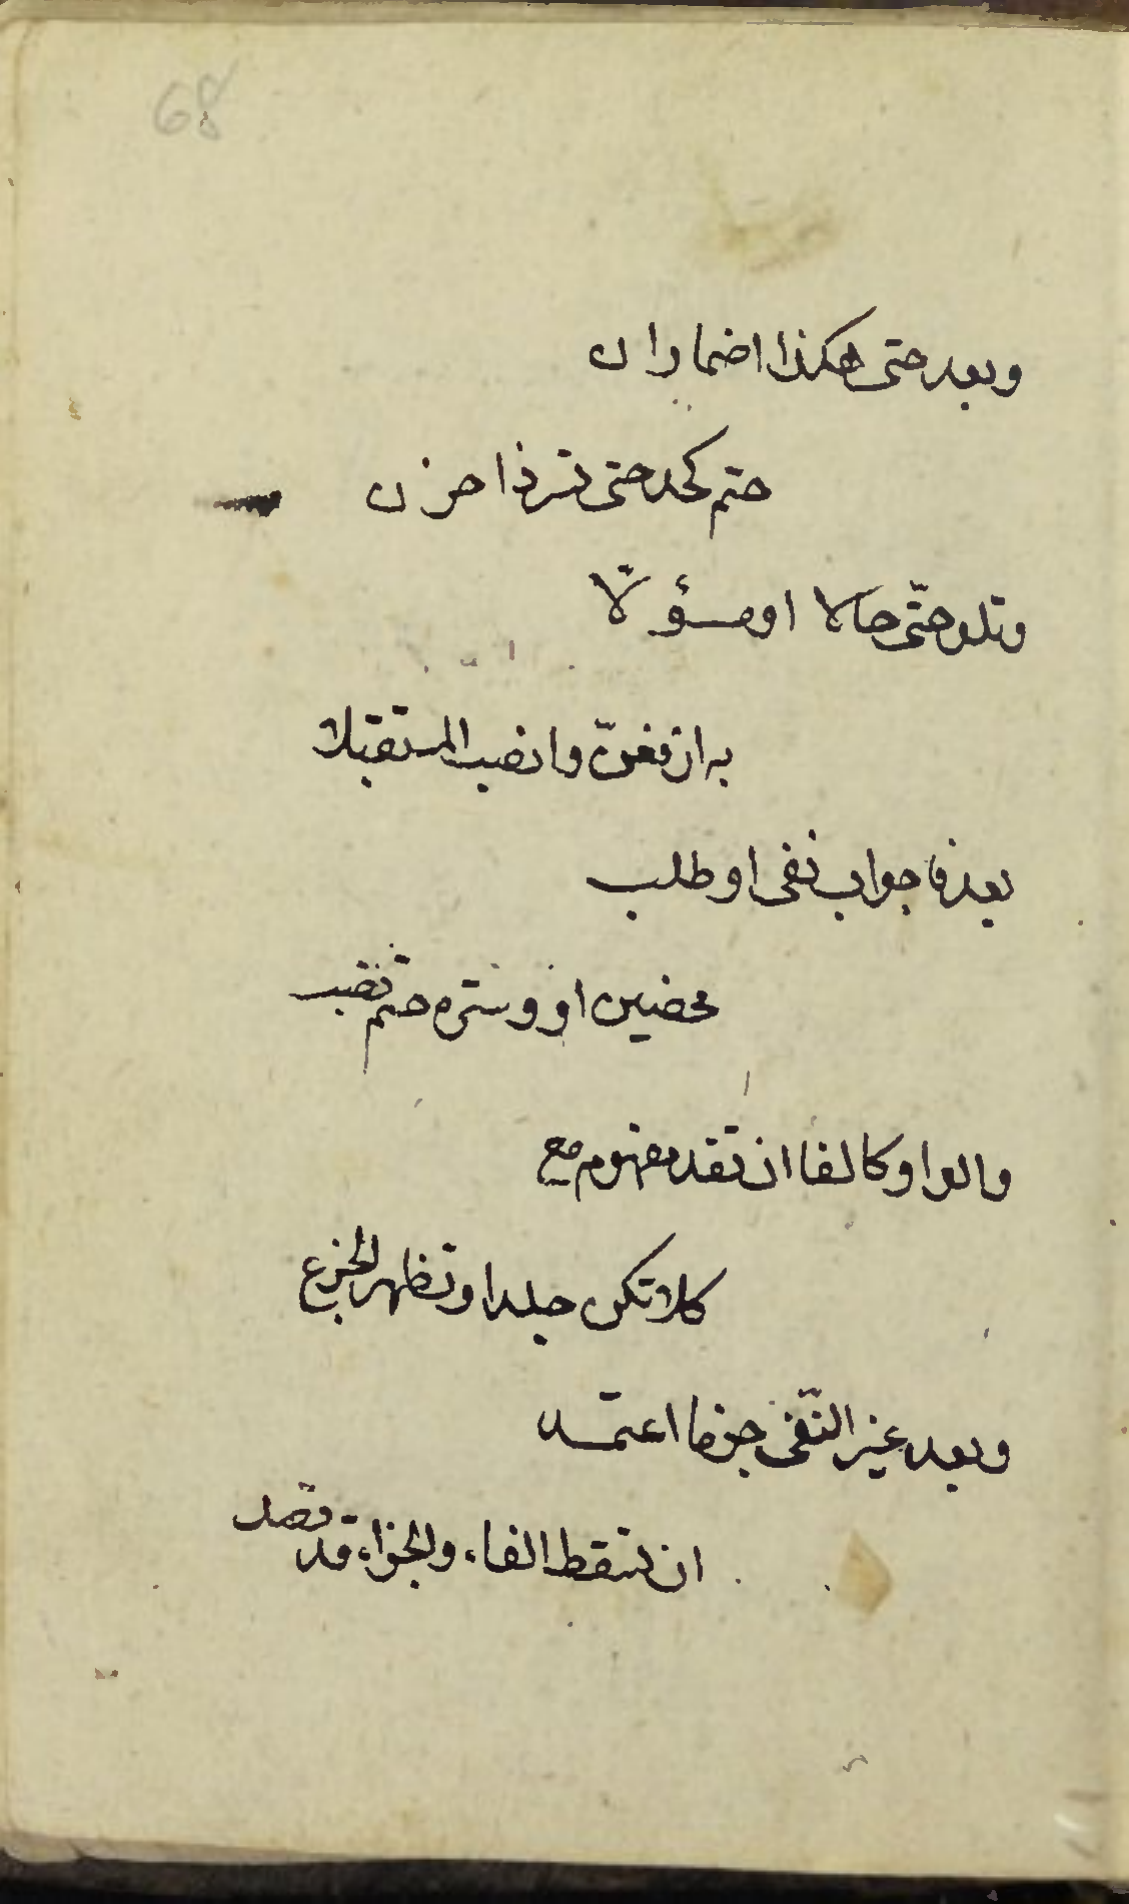 68
وبعد حتى هكذا اضمار ان
حتم كجد حتى تسر ذا حزن
وتلو حتّى حالا او مسؤولّا
به ارفعنّ وانصب المستقبلا
بعد فا جواب نفى او طلب
محضين ان وستره حتم نصب
والواو كالفا ان تفد مفهوم مع
كلا تكن جلدا وتظهر الجزع
وبعد غير النّفى جزما اعتمد
ان تسقط الفاء والجزاء قد قصد